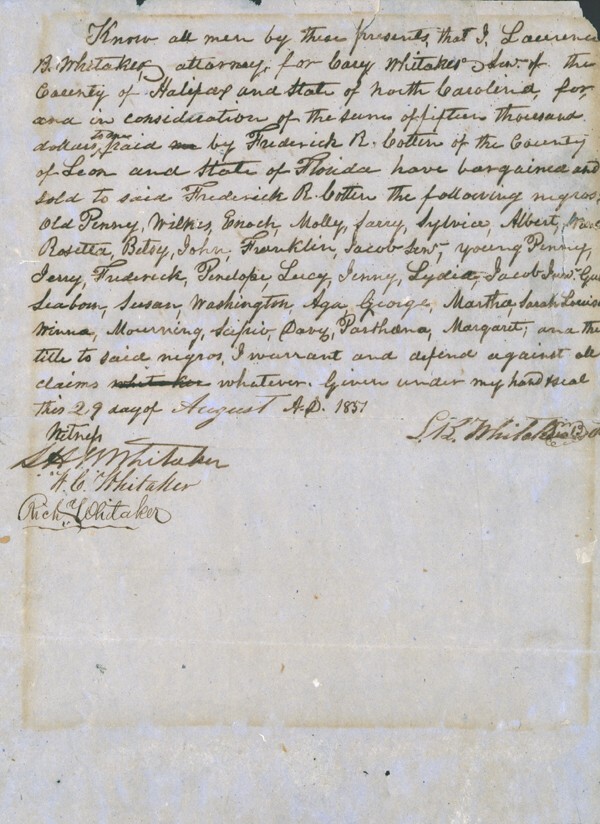 Know all men by these presents, that I, Lawrence
B. Whitaker, attorney, for Cary Whitaker Senr. of the
County of Halifax and State of North Carolina, for
and in consideration of the sum of fifteen thousand
dollars, to me paid by Frederick R. Cotten of the County
of Leon and State of Florida have bargained and
sold to said Frederick R. Cotten the following negros,
Old Penny, Wilkes, Enoch, Molly, Sarry, Sylvice, Albert,
Rosetta, Betsy, John, Franklin, Jacob Senr., young Penny,
Jerry, Frederick, Penelope, Lucy, Jenny, Lydia, Jacob Junr.
Seaborn, Susan, Washington, Aga, George, Martha, Sarah Louisa
Winna, Mourning, Scipio, Davy, Parthena, Margaret, and the
title to said negros, I warrant and defend against all
claims whatever. Given under my hand & seal
this 29 day of August A.D. 1851
Witness L. B. Whitaker
Whitaker
W. C. Whitaker
Richd. Whitaker